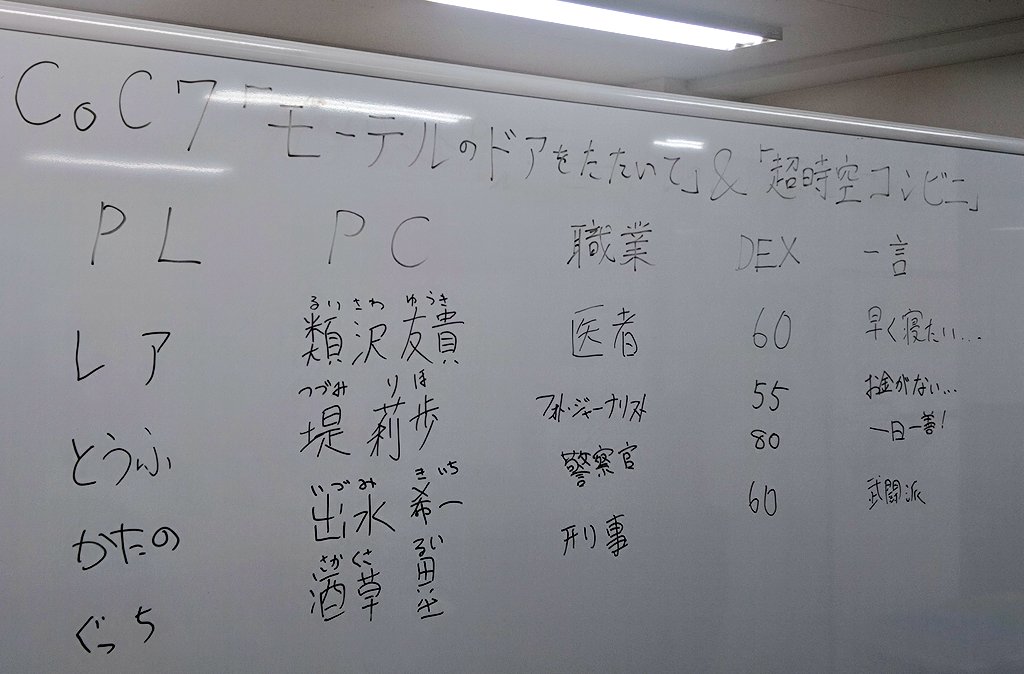 CoC7「モーテルのドアをたたいて」&「超時空コンビニ」
PL PC 職業 DEX 一言
るい さわ ゆう き
レア 類沢友貴 医者 60 早く寝たい...
つづみ り ほ
とうふ 堤 莉歩 フォト・ジャーナリスト 55 お金がない...
いづ み き いち
かたの 出水 希一 警察官 80 一日一善!
さか くさ るい
ぐっち 酒草 塁 刑事 60 武闘派